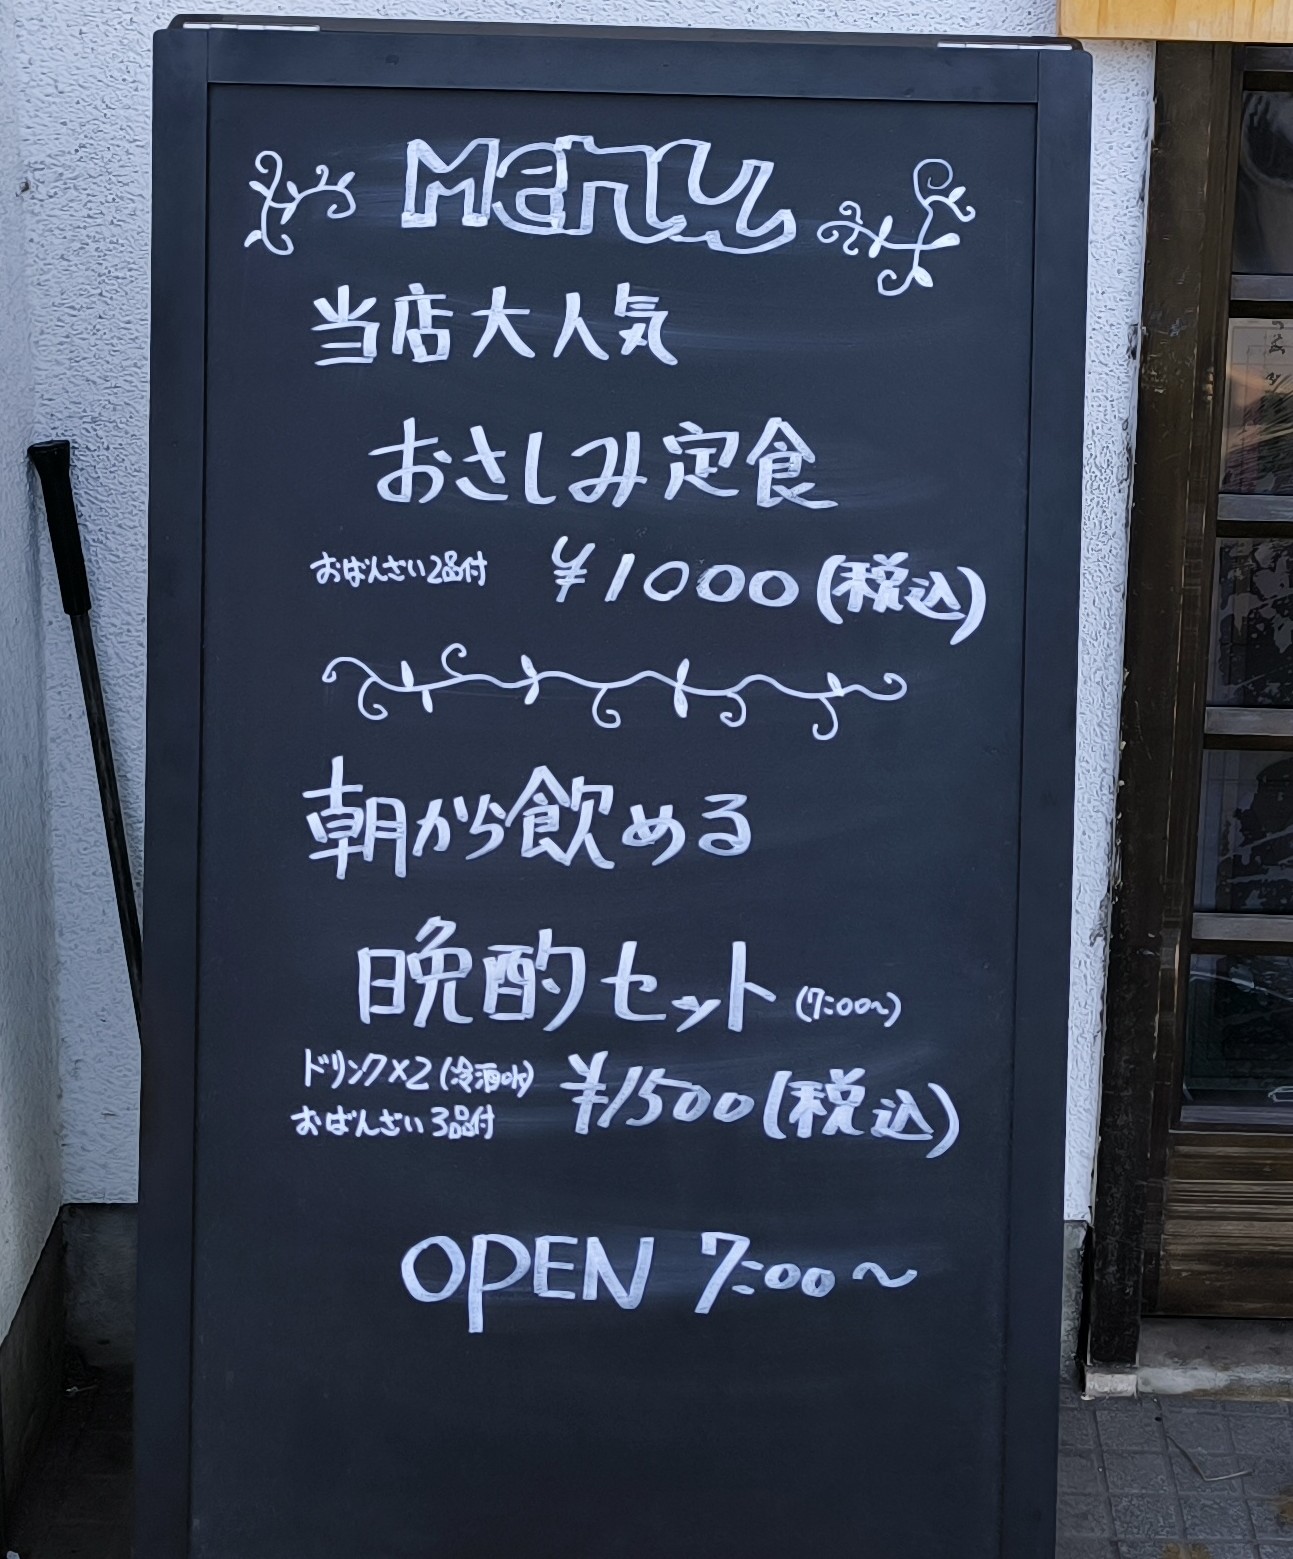 Menu
当店大人気
おさしみ定食
おばんざい2品付 ¥1000(税込)
朝から飲める
晩酌セット (7:00〜)
ドリンク×2(冷酒OK)
おばんざい3品付 ¥1500(税込)
OPEN 7:00〜